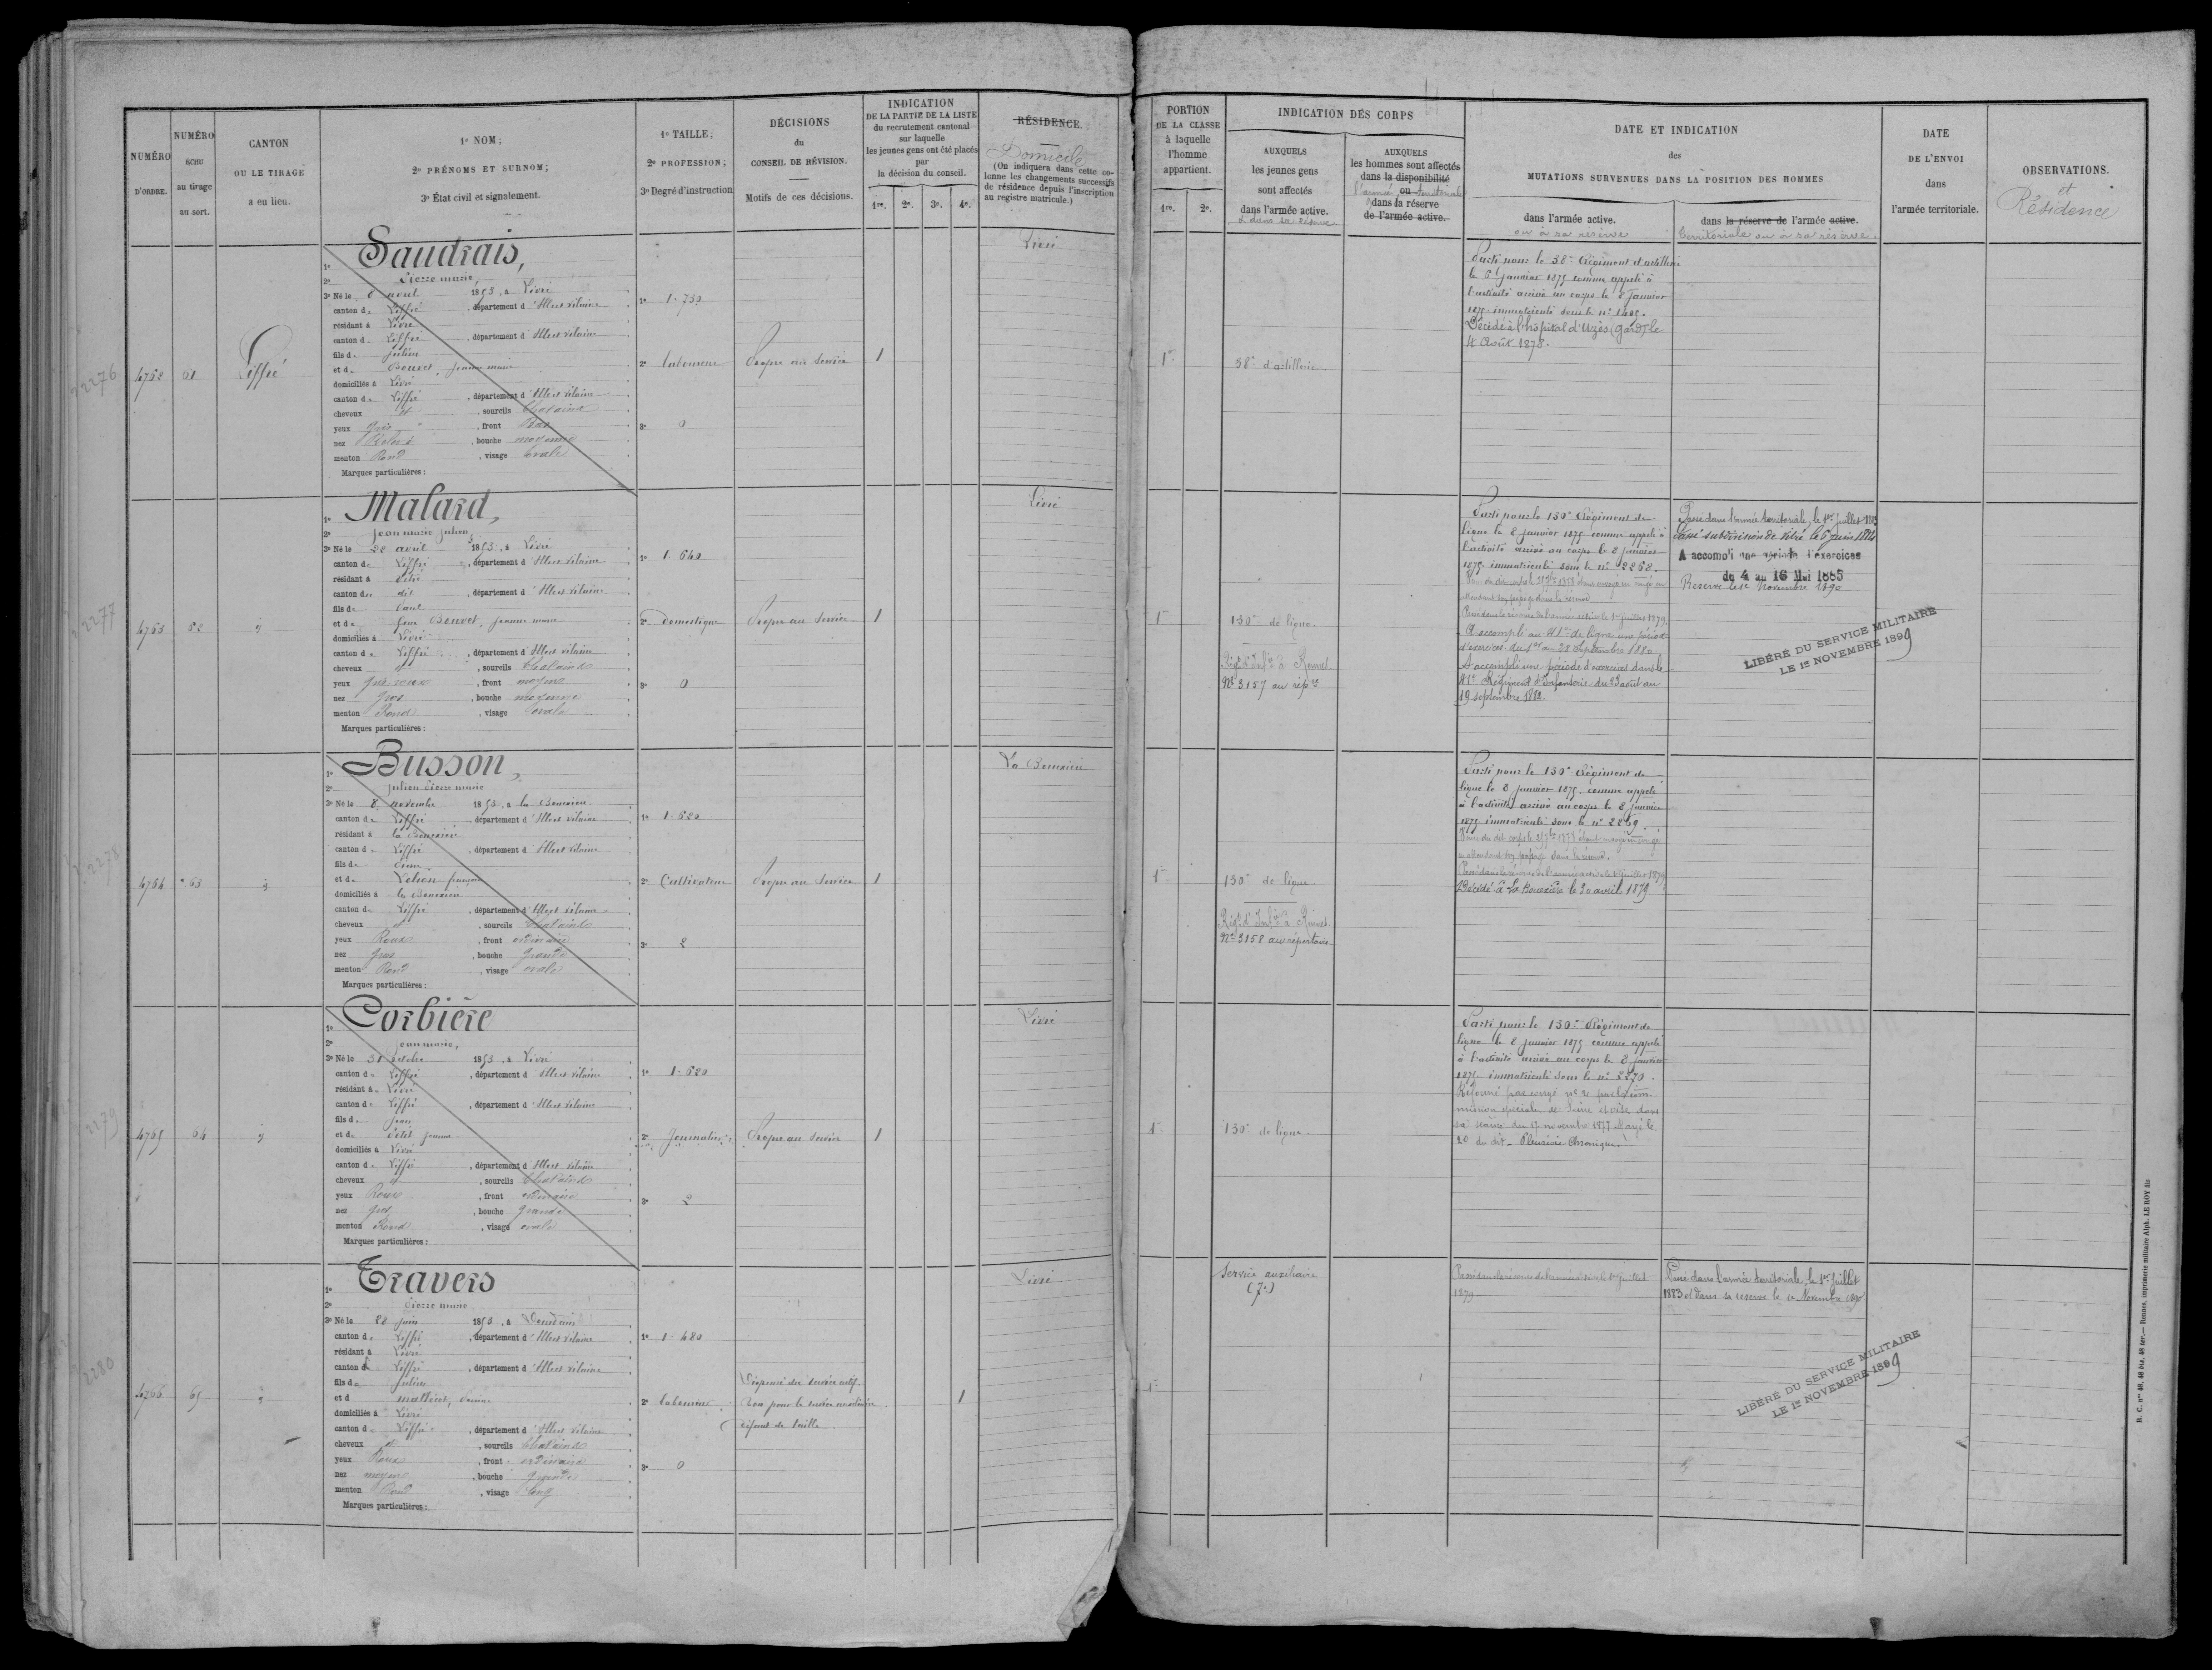 NUMÉRO
D'ORDRE.
NUMÉRO
ÉCHU
au tirage
au sort.
CANTON
OU LE TIRAGE
a eu lieu.
1o NOM;
2o PRÉNOMS ET SURNOM;
3o État civil et signalement.
1o TAILLE;
2o PROFESSION;
3o Degré d'instruction
DÉCISIONS
du
CONSEIL DE RÉVISION.
Motifs de ces décisions.
INDICATION
DE LA PARTIE DE LA LISTE
du recrutement cantonal
sur laquelle
les jeunes gens ont été placés
par
la décision du conseil.
1re. 2e. 3e. 4e.
RÉSIDENCE.
Domicile
(On indiquera dans cette co-
lonne les changements successifs
de résidence depuis l'inscription
au registre matricule.)
PORTION
DE LA CLASSE
à laquelle
l'homme
appartient.
1re. 2e.
INDICATION DES CORPS
AUXQUELS
les jeunes gens
sont affectés
dans l'armée active.
et dans sa réserve
AUXQUELS
les hommes sont affectés
dans la disponibilité
l'armée ou territoriale
dans la réserve
de l'armée active.
DATE ET INDICATION
des
MUTATIONS SURVENUES DANS LA POSITION DES HOMMES
dans l'armée active.
ou à sa réserve
dans la réserve de l'armée active.
territoriale ou à sa réserve.
DATE
DE L'ENVOI
dans
l'armée territoriale.
OBSERVATIONS.
et
Résidence
2276
4762 61 Liffré
1o Saudrais,
2o Pierre marie,
3o Né le 6 avril 1853, à Livré
canton de Liffré, département d'Ille et Vilaine
résidant à Livré
canton de Liffré, département d'Ille et Vilaine
fils de Julien
et de Bouvet, jeanne marie
domiciliés à Livré
canton de Liffré, département d'Ille et Vilaine
cheveux et, sourcils Chatains
yeux gris, front Bas
nez Relevé, bouche moyenne
menton Rond, visage ovale
Marques particulières:
1o 1.730
2o laboureur
3o 0
Propre au Service
1
Livré
1re
38e d'artillerie.
Parti pour le 38e Régiment d'artillerie
le 6 janvier 1875 comme appelé à
l'activité arrivé au corps le 8 janvier
1875 immatriculé sous le no 1405.
Décédé à l'hôpital d'Uzès (Gard) le
4 Août 1878.
2277
4763 62 d
1o Malard,
2o Jean marie julien,
3o Né le 28 avril 1853, à Livré
canton de Liffré, département d'Ille et Vilaine
résidant à
canton de dit, département d'Ille et Vilaine
fils de
et de feue Bouvet, jeanne marie
domiciliés à Livré
canton de Liffré, département d'Ille et Vilaine
cheveux et, sourcils Chatains
yeux gris roux, front moyen
nez gros, bouche moyenne
menton Rond, visage ovale
Marques particulières:
1o 1.640
2o domestique
3o 0
Propre au Service
1
Livré
1re
130e de ligne.
Régt d'Infie à Rennes.
No 3157 au répre
Parti pour le 130e Régiment de
ligne le 8 janvier 1875 comme appelé à
l'activité arrivé au corps le 8 janvier
1875 immatriculé sous le no 2268.
Passé dans la réserve de l'armée active le 1er juillet 1879.
A accompli au 41e de ligne une période
d'exercices du 1er au 28 septembre 1880.
A accompli une période d'exercices dans le
41e Régiment d'Infanterie du 23 août au
19 septembre 1882.
Passé dans l'armée territoriale, le 1er juillet 1883
Passé subdivision de Vitré le 6 juin 1884
A accompli une période d'exercices
du 4 au 16 Mai 1885
Réserve le 1er Novembre 1890
LIBÉRÉ DU SERVICE MILITAIRE
LE 1er NOVEMBRE 1899
2278
4764 63 d
1o Busson,
2o Julien Pierre marie
3o Né le 8 novembre 1853, à la Bouexière
canton de Liffré, département d'Ille et Vilaine
résidant à la Bouexière
canton de Liffré, département d'Ille et Vilaine
fils de Pierre
et de françoise
domiciliés à la Bouexière
canton de Liffré, département d'Ille et Vilaine
cheveux et, sourcils Chatains
yeux Roux, front ordinaire
nez gros, bouche grande
menton Rond, visage ovale
Marques particulières:
1o 1.620
2o Cultivateur
3o 2
Propre au Service
1
La Bouexière
1re
130e de ligne
Régt d'Infie à Rennes.
No 3158 au répertoire
Parti pour le 130e Régiment de
ligne le 8 janvier 1875 comme appelé
à l'activité arrivé au corps le 8 janvier
1875 immatriculé sous le no 2269.
Passé dans la réserve de l'armée active le 1er juillet 1879
Décédé à La Bouexière le 20 avril 1879
2279
4765 64 d
1o Corbière
2o Jean marie,
3o Né le 31 octobre 1853, à Livré
canton de Liffré, département d'Ille et Vilaine
résidant à Livré
canton de Liffré, département d'Ille et Vilaine
fils de Jean
et de Petit jeanne
domiciliés à Livré
canton de Liffré, département d'Ille et Vilaine
cheveux et, sourcils Chatains
yeux Roux, front ordinaire
nez gros, bouche grande
menton Rond, visage ovale
Marques particulières:
1o 1.620
2o Journalier
3o 2
Propre au Service
1
Livré
1re
130e de ligne
Parti pour le 130e Régiment de
ligne le 8 janvier 1875 comme appelé
à l'activité arrivé au corps le 8 janvier
1875 immatriculé sous le no 2270.
Réformé par congé no 2 par la Com-
mission spéciale de Seine et Oise dans
sa séance du 17 novembre 1877. Rayé le
20 du dit. Pleurésie Chronique.
2280
4766 65 d
1o Travers
2o Pierre marie
3o Né le 28 juin 1853, à Dourdain
canton de Liffré, département d'Ille et Vilaine
résidant à Livré
canton de Liffré, département d'Ille et Vilaine
fils de Julien
et d
domiciliés à Livré
canton de Liffré, département d'Ille et Vilaine
cheveux et, sourcils Chatains
yeux Roux, front ordinaire
nez moyen, bouche grande
menton Rond, visage long
Marques particulières:
1o 1.480
2o laboureur
3o 0
Dispensé du service actif.
Bon pour le service auxiliaire
défaut de taille
1
Livré
1re
Service auxiliaire
(7e)
Passé dans la réserve de l'armée active le 1er juillet
1879
Passé dans l'armée territoriale, le 1er juillet
1883 et dans sa réserve le 1er Novembre 1890
LIBÉRÉ DU SERVICE MILITAIRE
LE 1er NOVEMBRE 1899
B. C. nos 40, 48 bis, 48 ter.— Rennes, imprimerie militaire Alph. LE ROY fils